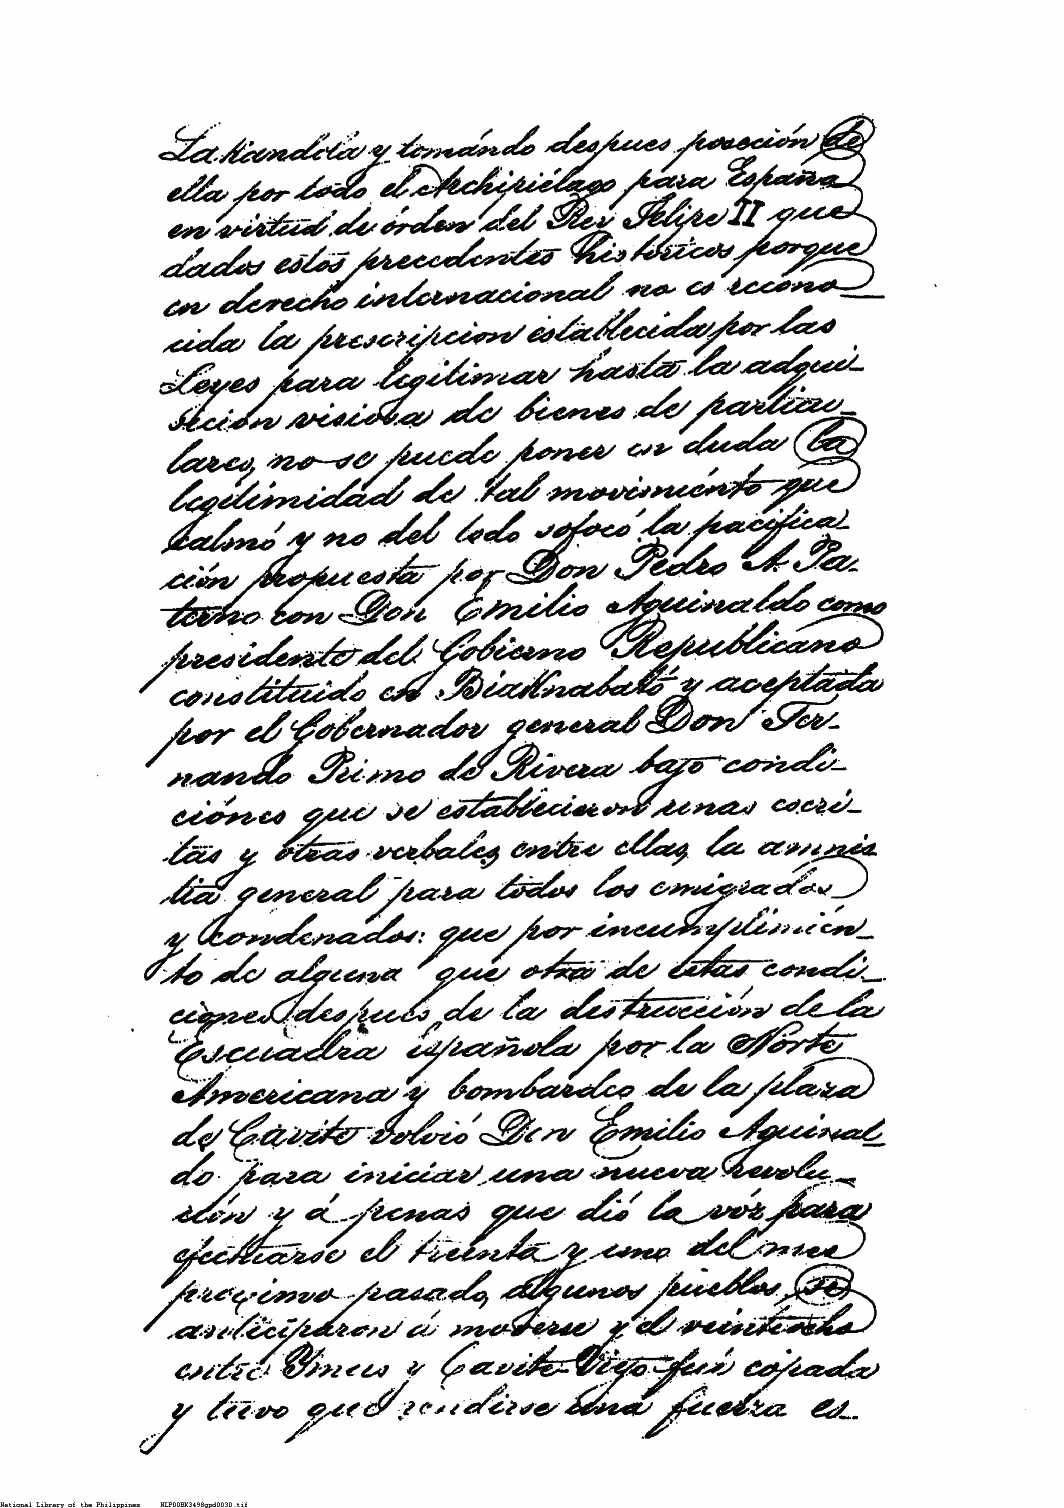 Lakandola y tomándo despues poseción de
ella por todo el Archipiélago para España
en virtud de órden del Rey Felipe II que
dados estos precedentes históricos porque
en derecho internacional no es recono
cida la prescripcion establecida por las
Leyes para legitimar hasta la adqui-
sicion visiosa de bienes de particu-
lares, no se puede poner en duda la
legitimidad de tal movimiénto que
calmó y no del todo sofocó la pacifica-
ción propuesta por Don Pedro A. Pa-
terno con Don Emilio Aguinaldo como
presidente del Gobierno Republicano
constituido en Biaknabató y aceptada
por el Gobernador general Don Fer-
nando Primo de Rivera bajo condi-
ciónes que se establecieron unas escri-
tas y otras verbales, entre ellas, la amnis
tia general para todos los emigrados
y condenados: que por incumplimién-
to de alguna que otra de estas condi-
ciones despues de la destrucción de la
Escuadra española por la Norte
Americana y bombardeo de la plaza
de Cavite volvió Don Emilio Aguinal-
do para iniciar una nueva revolu-
ción y á penas que dió la vóz para
efectuarse el treinta y uno del mes
proximo pasado, algunos pueblos, se
anticiparon á moverse y el veintiocho
entre Ymus y Cavite-Viejo fué copada
y tuvo que rendirse una fuerza es-
National Library of the Philippines NLP00BK3498gpd0030.tif